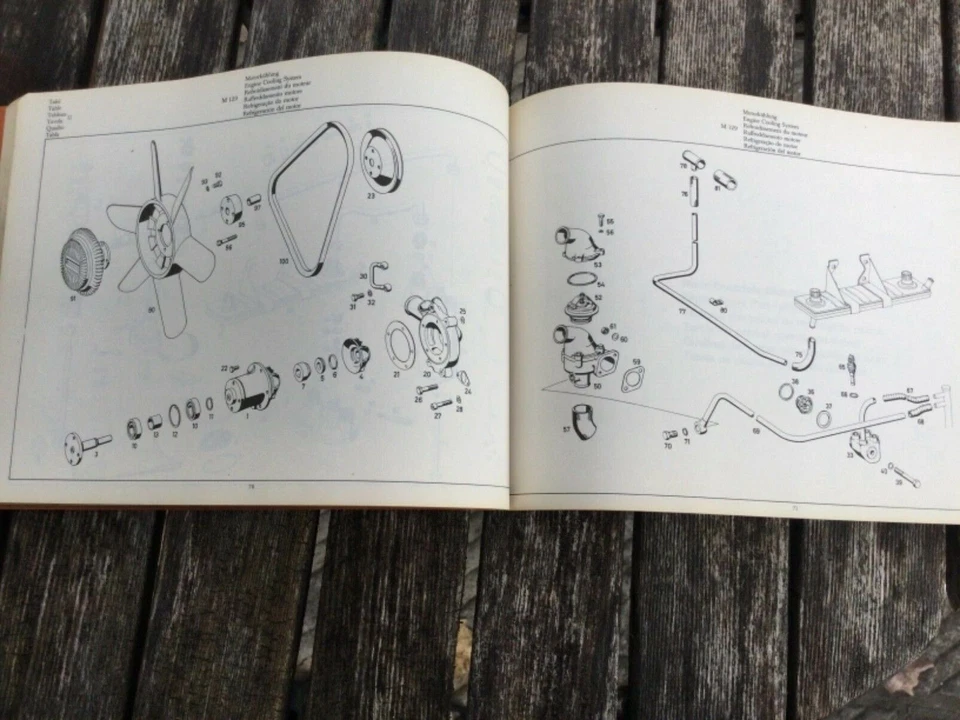 Tafel
Table
Tableau
Tavola
Quadro
Tabla
M 129
Motorkühlung
Engine Cooling System
Refroidissement du moteur
Raffreddamento motore
Refrigeração do motor
Refrigeración del motor
92
97
96
100
23
91
90
30
31
32
25
22
7
6
4
21
20
24
26
27
28
3
10
13
12
11
1
M 129
Motorkühlung
Engine Cooling System
Refroidissement du moteur
Raffreddamento motore
Refrigeração do motor
Refrigeración del motor
78
76
81
55
56
53
54
52
77
80
61
60
59
50
57
75
65
38
36
37
58
67
68
70
71
69
33
40
39